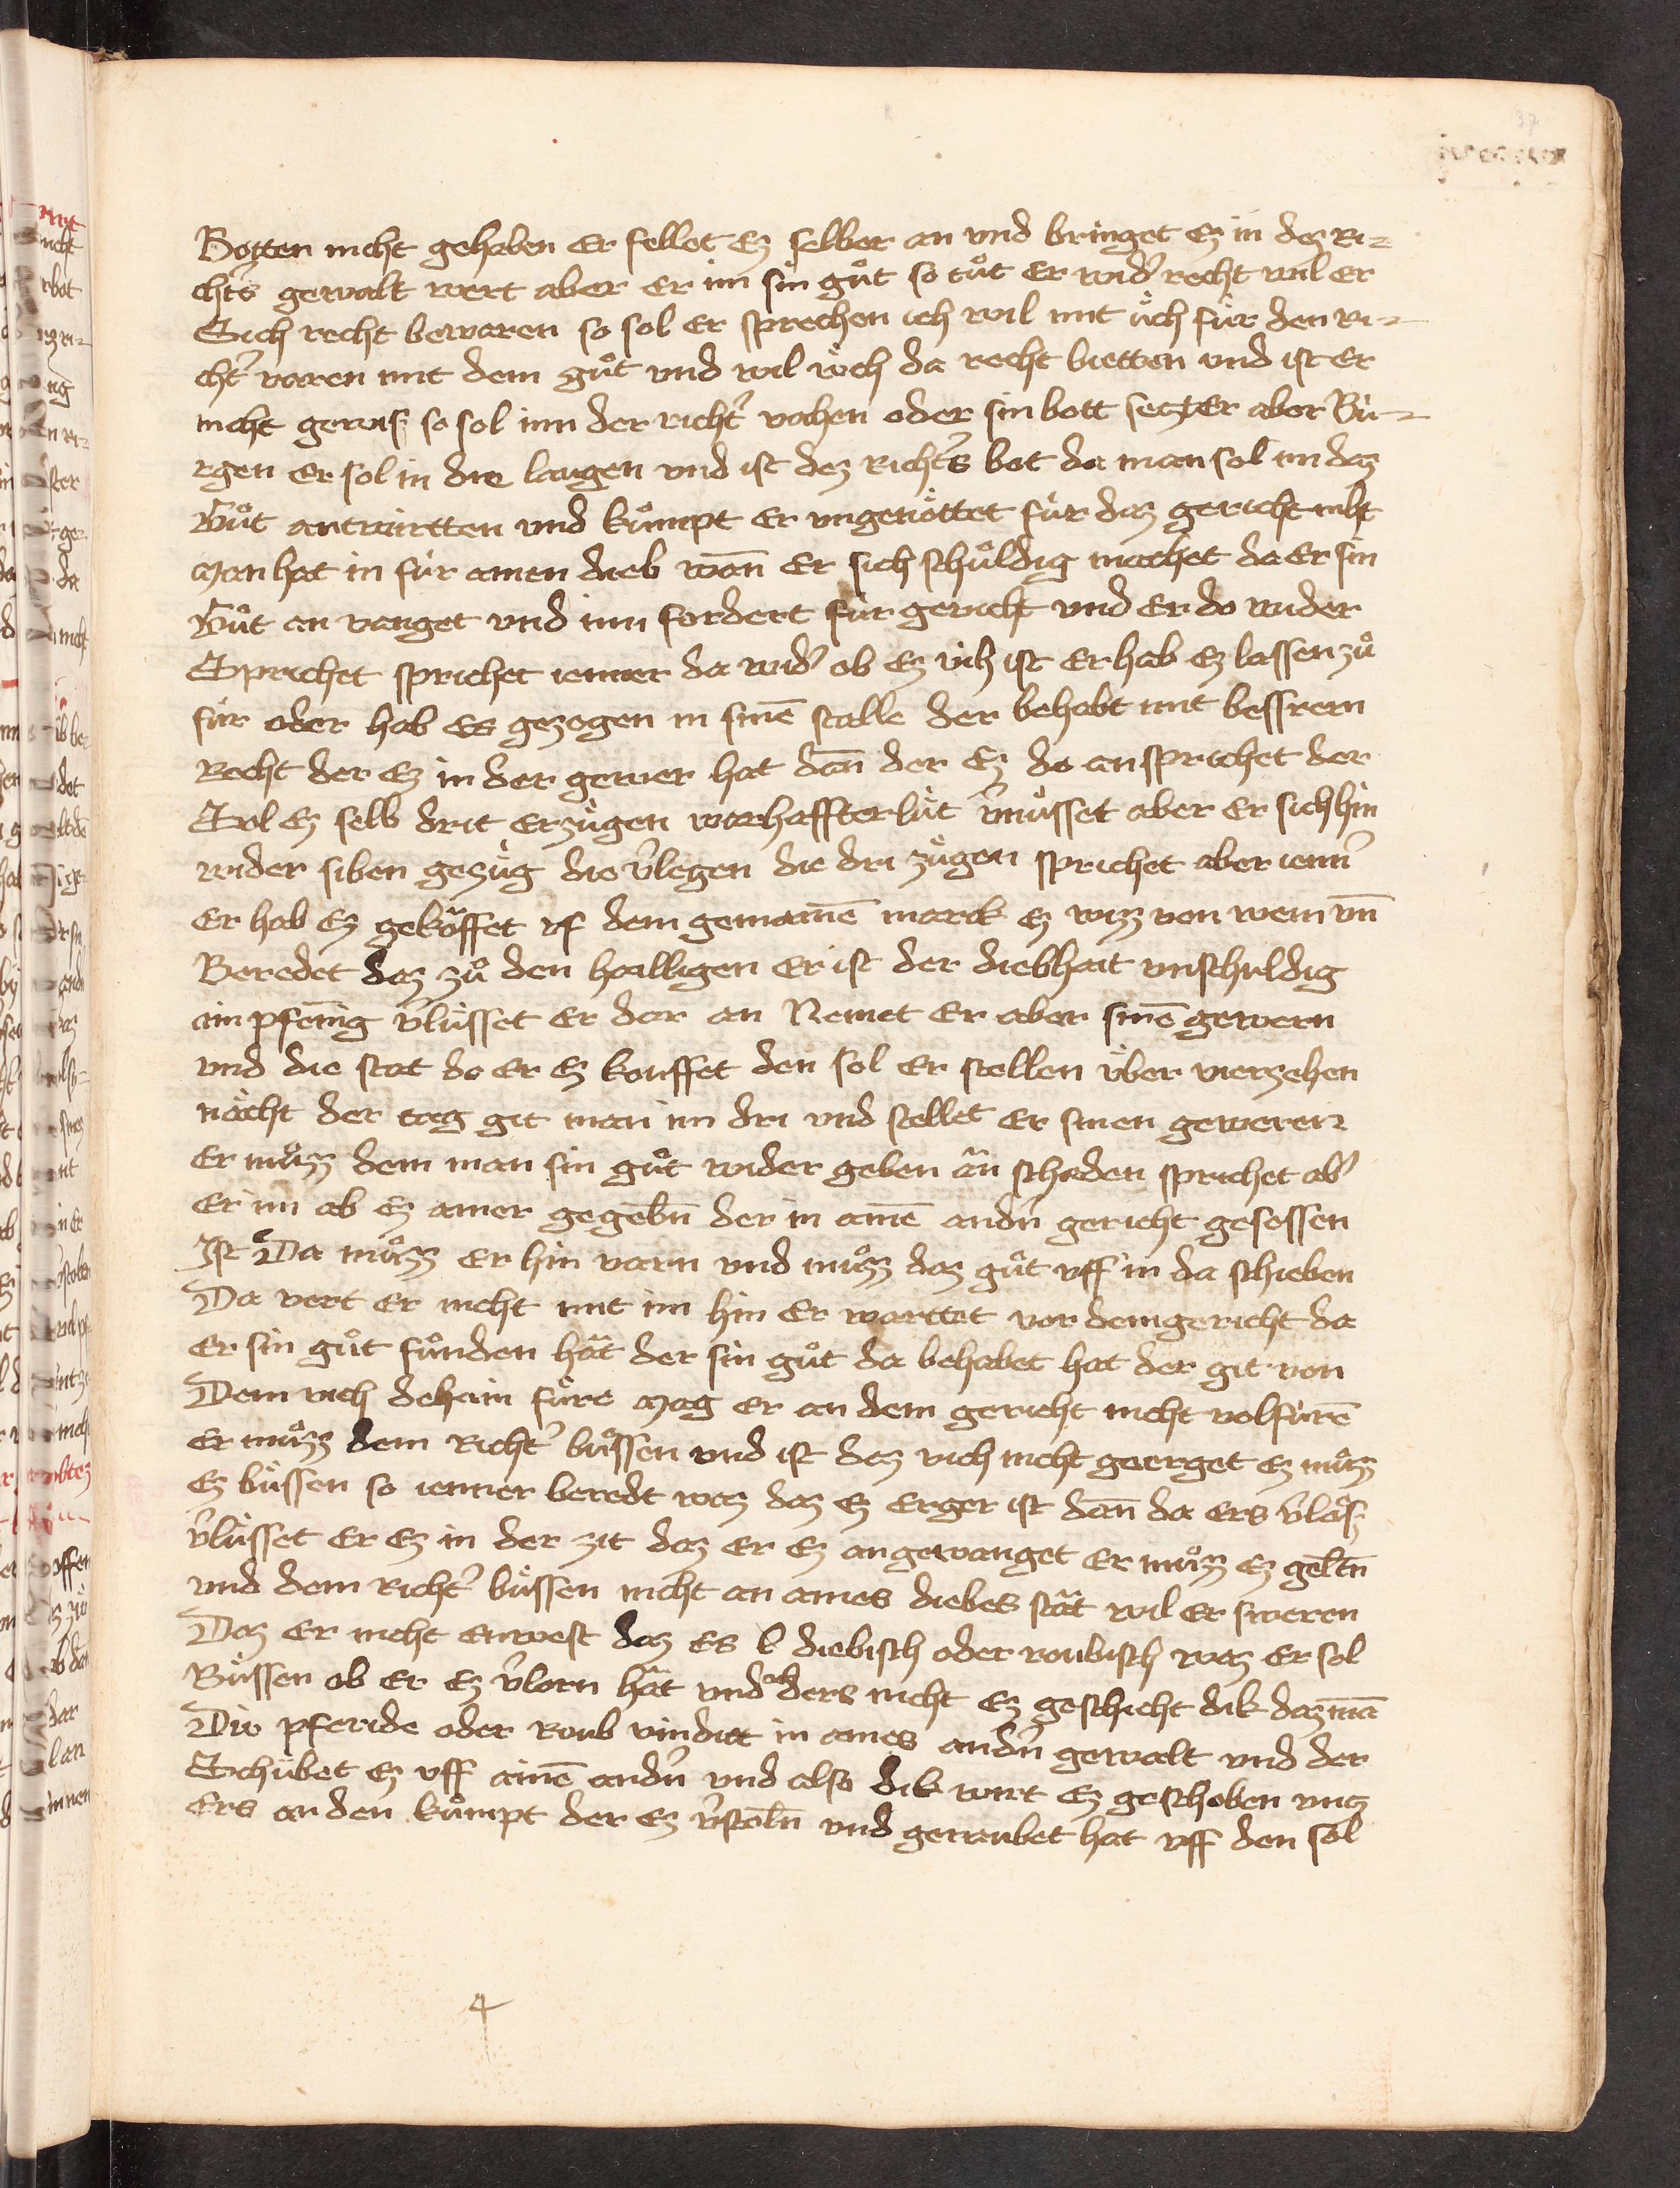 37
Botten nicht gehaben Er fellet Ez selber an vnd bringet Ez in dez Ri-
chters gewalt wert aber Er im sin gůt so tůt Er wid' recht wil er
Sich recht bewaren so sol Er sprechen ich wil mit ùch fùr den Ri-
cht' varen mit dem gůt vnd wil ùch da recht bietten vnd ist Er
nicht gewis so sol inn der richt' vahen oder sin bott setzt Er aber Bù-
rgen Er sol in die langen vnd ist dez Richt's bot da man sol im daz
Gůt antwùrtten vnd kůmpt Er vngenöttet fùr daz gericht nibt
Man hat in fùr ainen dieb wan̄ Er sich schůldig machet da Er sin
Gůt an vanget vnd inn fordert fùr gericht vnd Er do wider
Sprichet sprichet ienner da wid' ob Ez vich ist Er hab Ez lassen zů
fùr oder hab Es gezogen in sinē stalle der behabt mit bessrem
Recht der Ez in der gewer hat dan̄ der Ez do an sprichet der
Sol Ez selb drit Erzùgen warhaffter lùt v'mùsset aber Er sich hin
wider siben gezùg die v'legen die dri zùgen sprichet aber ienn'
Er hab Ez gekåffet vf dem gemainē marck Ez wizz von wem vn̄
Beredet daz zů den hailligen Er ist der diebhait vnschuldig
ain pfen̄ing v'lùsset Er dar an Nemet Er aber sinē gewern
vnd die stat do Er Ez kouffet den sol Er stellen ùber vierzehen
nächt der tag git man im dri vnd stellet Er sinen geweren
Er můzz dem man sin gůt wider geben ån schaden sprichet ab'
Er im ab Ez ainer gegebn̄ der in ainē andn̄ gericht gesessen
Ist Da můzz Er hin varn vnd můzz daz gůt vff in da schieben
Da vert Er nicht mit im hin Er warttet vor dem gericht da
Er sin gůt fůnden håt der sin gůt da behabet hat der git von
Dem vich dehain fůre Mag er an dem gericht nicht volfùrē
Er můzz dem Richt' bůssen vnd ist daz vich nicht geerget Ez můz
Ez bùssen so ienner beredt waz daz Ez Erger ist dan̄ da ers v'låsz
v'lùsset Er Ez in der zit daz Er Ez angevanget Er můzz Ez geltn̄
vnd dem Richt' bùssen nicht an aines diebes ståt wil Er sweren
Daz Er nicht Enwest daz Es diebisch oder roubisch waz Er sol
Bùssen ob Er Ez v'lorn håt vnd anders nicht Ez geschicht dik daz mā
Die pferide oder Roub vindet in aines andn̄ gewalt vnd der
Schùbet Ez vff ainē andn̄ vnd also dik wirt Ez geschoben vntz
Ers an den kůmpt der Ez v'stoln̄ vnd geraubet hat vff den sol
4